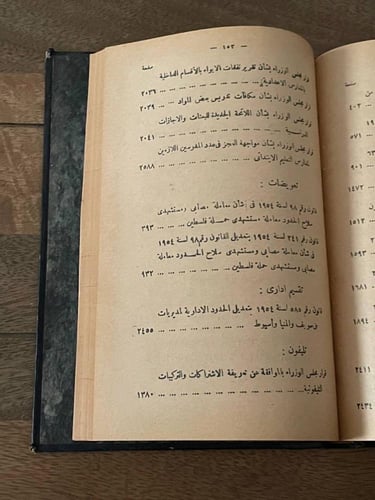 — ١٥٢ —
صفحة
قرار مجلس الوزراء بشأن تقرير نفقات الايواء بالأقسام الداخلية
بالمدارس الاعدادية ... ٢٠٣٩
قرار مجلس الوزراء بشأن مكافآت تدريس بعض المواد ... ٢٠٣٩
قرار مجلس الوزراء بشأن اللائحة الجديدة للبعثات والاجازات
الدراسية ... ... ... ... ... ... ... ... ٢٠٤١
قرار مجلس الوزراء بشأن مواجهة العجز فى عدد المدرسين اللازمين
لمدارس التعليم الابتدائى ... ... ... ... ... ... ٢٥٨٨
تعويضات :
قانون رقم ٩٨ لسنة ١٩٥٤ فى شأن معاملة مصابى ومستشهدى
سلاح الحدود معاملة مستشهدى حملة فلسطين ... ... ٣٩٣
قانون رقم ٢٤١ لسنة ١٩٥٤ بتعديل القانون رقم ٩٨ لسنة ١٩٥٤
فى شأن معاملة مصابى ومستشهدى سلاح الحدود معاملة
مصابى ومستشهدى حملة فلسطين ... ... ... ... ٩٣٢
تقسيم ادارى :
قانون رقم ٥٨٥ لسنة ١٩٥٤ بتعديل الحدود الادارية لمديريات
بنى سويف والمنيا وأسيوط ... ... ... ... ... ٢٤٥٥
تليفون :
قرار مجلس الوزراء بالموافقة على تعريفة الاشتراكات والتركيبات
التليفونية ... ... ... ... ... ... ... ... ١٣٨٠
صفحة
٤٠٢
٥٧١
١٤٧٢
١٦٨١
١٨٩٤
٢٤١١
٢٤٣٤